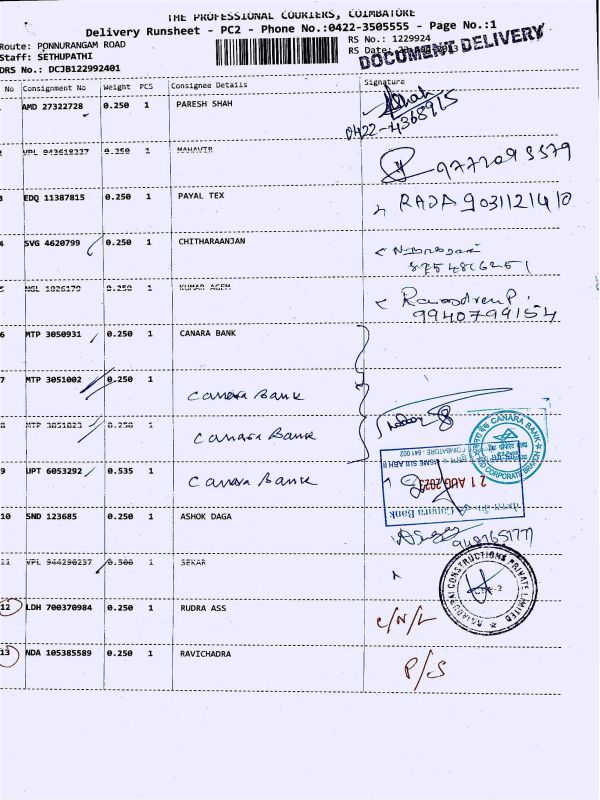 THE PROFESSIONAL COURIERS, COIMBATORE
Delivery Runsheet - PC2 - Phone No.:0422-3505555 - Page No.:1
Route: PONNURANGAM ROAD
RS No.: 1229924
Staff: SETHUPATHI
RS Date:
DOCUMENT DELIVERY
DRS No.: DCJB122992401
No Consignment No Weight PCS Consignee Details Signature
AMD 27322728 0.250 1 PARESH SHAH
0422-4368915
VPL 943618337 0.250 1 MAHAVIR
EDQ 11387815 0.250 1 PAYAL TEX RAJA 9031121410
4 SVG 4620799 0.250 1 CHITHARAANJAN
8754816251
5 NGL 1026179 0.250 1 KUMAR AGEM
9940799154
6 MTP 3050931 0.250 1 CANARA BANK
7 MTP 3051002 0.250 1 Canara Bank
8 MTP 3051023 0.250 1 Canara Bank
9 UPT 6053292 0.535 1 Canara Bank
CANARA BANK
MID CORPORATE BRANCH
COIMBATORE - 641 002
Canara Bank
10 SND 123685 0.250 1 ASHOK DAGA
11 VPL 944290237 0.500 1 SEKAR
CONSTRUCTIONS PRIVATE LIMITED
12 LDH 700370984 0.250 1 RUDRA ASS C/N/L
13 NDA 105385589 0.250 1 RAVICHADRA P/S